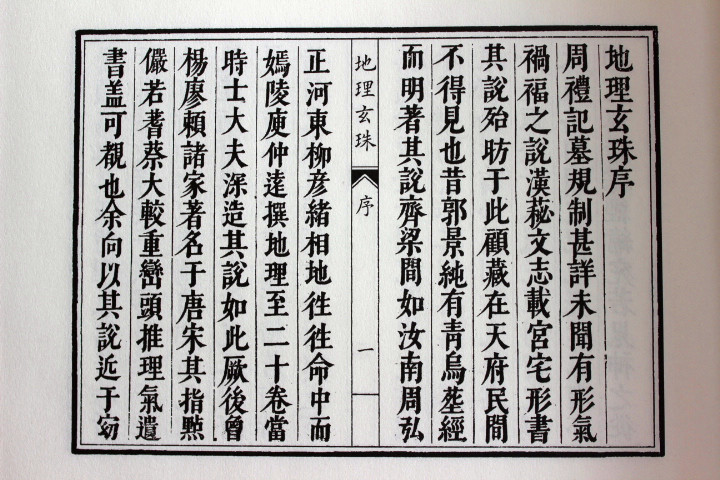 地理玄珠序
周禮記墓規制甚詳未聞有形氣
禍福之說漢藝文志載宮宅形書
其說殆昉于此顧藏在天府民間
不得見也昔郭景純有青烏𦵏經
而明著其說齊梁間如汝南周弘
地理玄珠
序
一
正河東柳彥緒相地徃徃命中而
嫣陵庾仲遠撰地理至二十卷當
時士大夫深造其說如此厥後曾
楊廖賴諸家著名于唐宋其指㸃
儼若蓍蔡大較重巒頭推理氣遺
書盖可覩也余向以其說近于窈